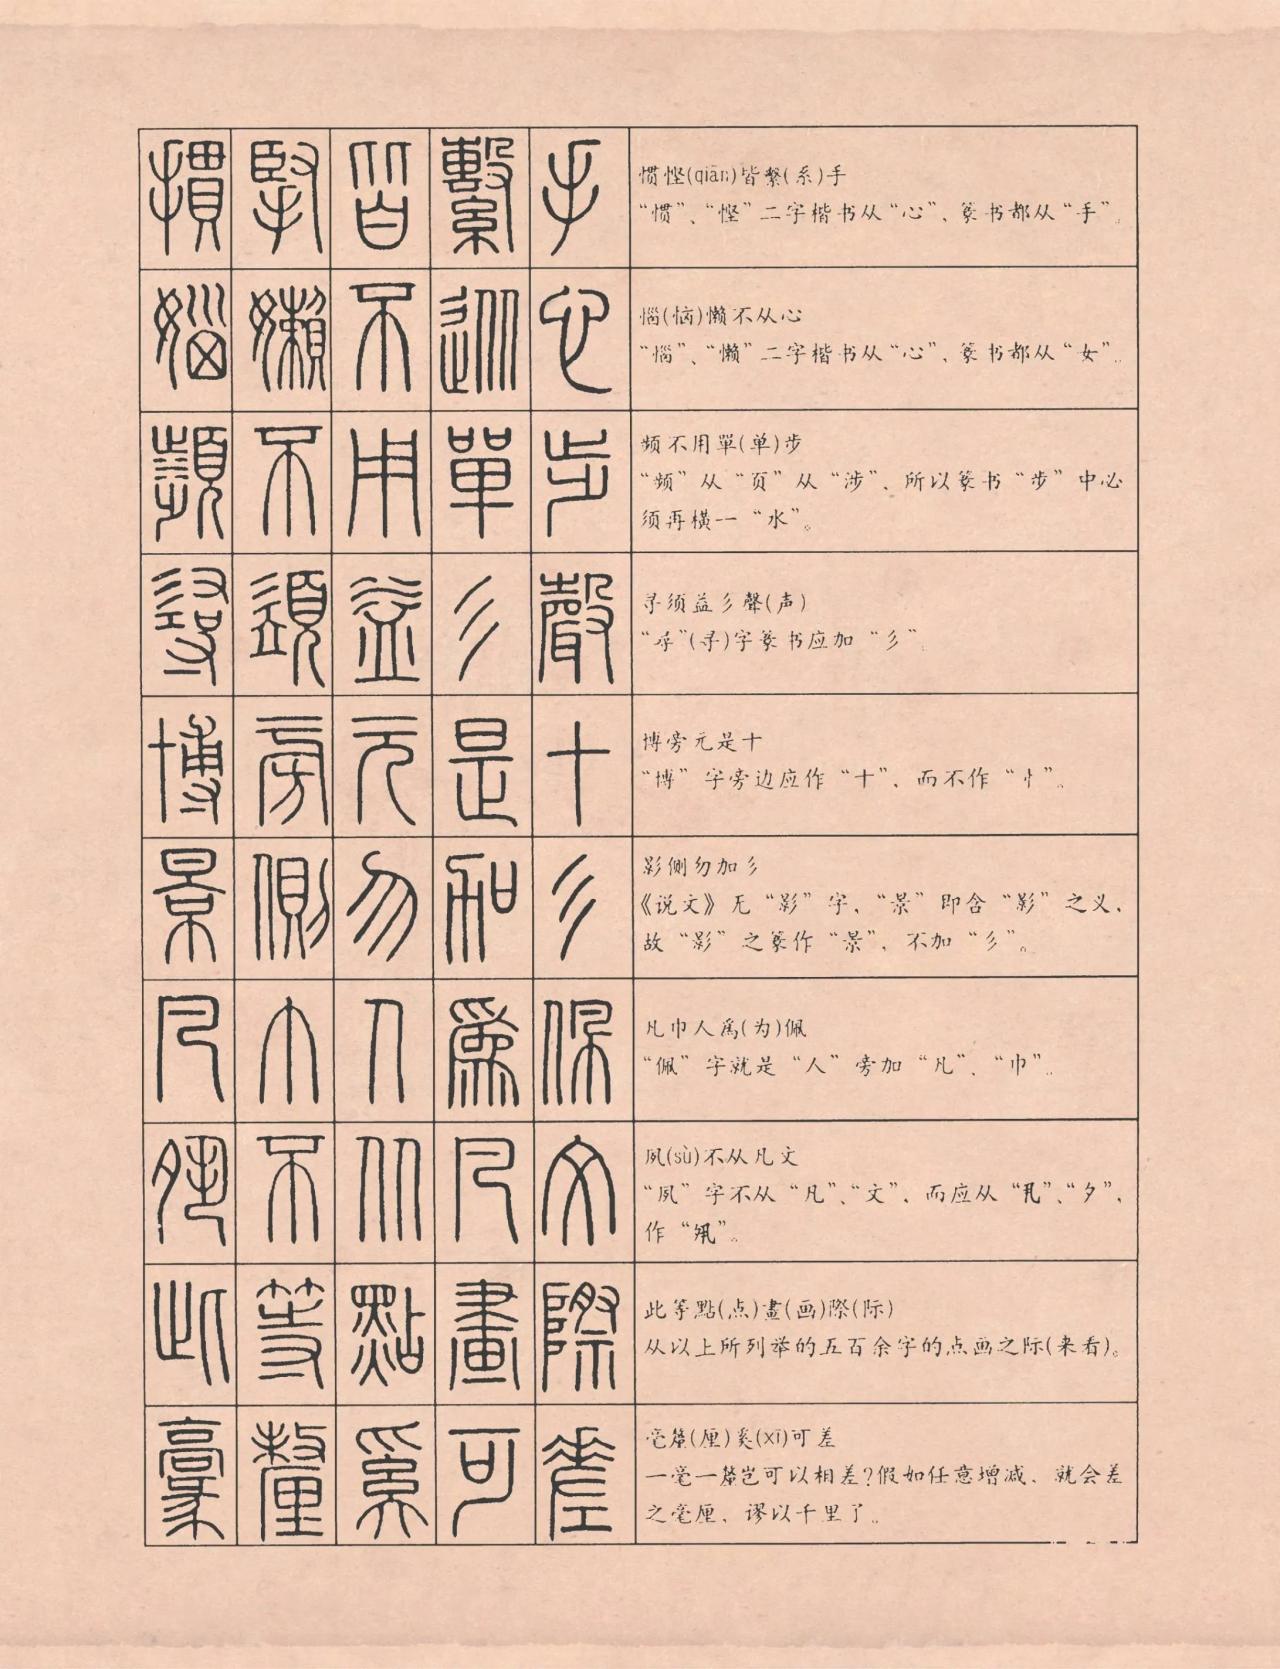 摜掔皆繫手
惯悭(qiān)皆繫(系)手
“惯”、“悭”二字楷书从“心”、篆书都从“手”。
㛴嬾不從心
惱(恼)懒不从心
“惱”、“懒”二字楷书从“心”、篆书都从“女”。
頻不用單步
频不用單(单)步
“频”从“页”从“涉”、所以篆书“步”中必
须再横一“水”。
尋須益彡聲
寻须益彡聲(声)
“尋”(寻)字篆书应加“彡”。
博旁元是十
博旁元是十
“博”字旁边应作“十”、而不作“忄”。
景側勿加彡
影侧勿加彡
《说文》无“影”字、“景”即含“影”之义、
故“影”之篆作“景”、不加“彡”。
凡巾人爲佩
凡巾人爲(为)佩
“佩”字就是“人”旁加“凡”、“巾”。
夙不从凡文
夙(sù)不从凡文
“夙”字不从“凡”、“文”、而应从“丮”、“夕”、
作“𡖊”。
此等點畫際
此等點(点)畫(画)際(际)
从以上所列举的五百余字的点画之际(来看)。
毫釐奚可差
毫釐(厘)奚(xī)可差
一毫一釐岂可以相差?假如任意增减、就会差
之毫厘、谬以千里了。